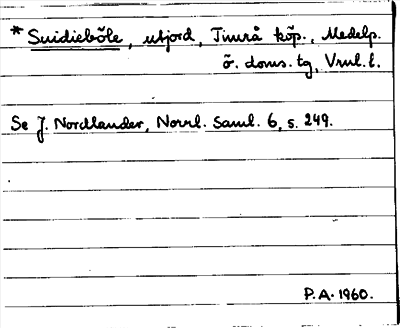 * Suidieböle, utjord, Timrå köp., Medelp.
ö. doms. tg, Vrnl. l.
Se J. Nordlander, Norrl. Saml. 6, s. 249.
P.A. 1960.